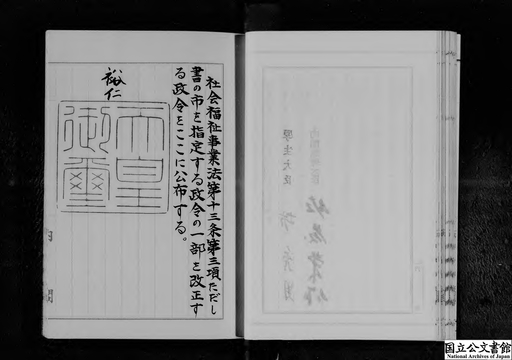 社会福祉事業法第十三条第三項ただし
書の市を指定する政令の一部を改正す
る政令をここに公布する。
裕仁
天皇
御璽
厚生大臣
国立公文書館
National Archives of Japan